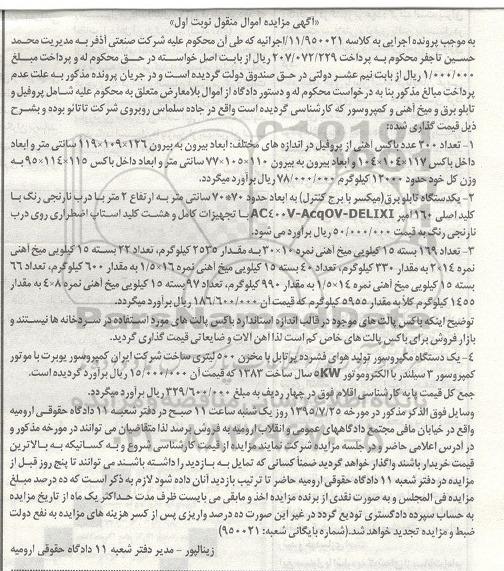 «آگهی مزایده اموال منقول نوبت اول»
به موجب پرونده اجرایی به کلاسه ۱۱/۹۵۰۰۲۱/اجرائیه که طی آن محکوم علیه شرکت صنعتی آذفر به مدیریت محمد
حسین تاجفر محکوم به پرداخت ۲۰۷/۰۷۲/۲۲۹ ریال از بابت اصل خواسته در حق محکوم له و پرداخت مبلغ
۱/۰۰۰/۰۰۰ ریال از بابت نیم عشر دولتی در حق صندوق دولت گردیده است و در جریان پرونده مذکور به علت عدم
پرداخت مبالغ مذکور بنا به درخواست محکوم له و دستور دادگاه از اموال بلامعارض متعلق به محکوم علیه شامل پروفیل و
تابلو برق و میخ آهنی و کمپروسور که کارشناسی گردیده است واقع در جاده سلماس روبروی شرکت تاتائو بوده و بشرح
ذیل قیمت گذاری شده:
۱- تعداد ۳۰۰ عدد باکس آهنی از پروفیل در اندازه های مختلف: ابعاد بیرون به بیرون ۱۲۶×۱۰۹×۱۱۹ سانتی متر و ابعاد
داخل باکس ۱۱۷×۱۰۴×۱۰۴ و ابعاد بیرون به بیرون ۱۱۰×۱۰۵×۷۷ سانتی متر و ابعاد داخل باکس ۱۱۵×۱۱۴×۹۵ به
وزن کل خود حدود ۱۲۰۰۰ کیلوگرم ۷۸/۰۰۰/۰۰۰ ریال برآورد میگردد.
۲- یکدستگاه تابلو برق(میکسر با برج کنترل) به ابعاد حدود ۷۰*۷۰ سانتی متر به ارتفاع ۲ متر با درب نارنجی رنگ با
کلید اصلی ۱۶۰ امپر AC۴۰۰V-AcqOV-DELIXI با تجهیزات کامل و هشت کلید استاپ اضطراری روی درب
نارنجی رنگ به قیمت ۵۰/۰۰۰/۰۰۰ ریال برآورد می شود.
۳- تعداد ۱۶۹ بسته ۱۵ کیلویی میخ آهنی نمره ۱۰×۳۰ به مقدار ۲۵۳۵ کیلوگرم، تعداد ۲۲ بسته ۱۵ کیلویی میخ آهنی
نمره ۲×۱۴ به مقدار ۳۳۰ کیلوگرم، تعداد ۴۰ بسته ۱۵ کیلویی میخ آهنی نمره ۱/۵×۱۶ به مقدار ۶۰۰ کیلوگرم، تعداد ۶۶
بسته ۱۵ کیلویی میخ آهنی نمره ۱/۵×۱۴ به مقدار ۹۹۰ کیلوگرم، تعداد ۹۷ بسته ۱۵ کیلویی میخ آهنی نمره ۴×۸ به مقدار
۱۴۵۵ کیلوگرم کلا به مقدار ۵۹۵۵ کیلوگرم که قیمت آن ۱۸۶/۶۰۰/۰۰۰ ریال برآورد میگردد.
توضیح اینکه باکس پالت های موجود در قالب اندازه استاندارد باکس پالت های مورد استفاده در سردخانه ها نیستند و
بازار فروش برای باکس پالت های خاص کم است لذا اهن الات و ضایعاتی قیمت گذاری گردید.
۴- یک دستگاه مگپروسور تولید هوای فشرده پرتابل با مخزن ۵۰۰ لیتری ساخت شرکت ایران کمپروسور یوبرت با موتور
کمپروسور ۳ سیلندر با الکتروموتور ۵KW سال ساخت ۱۳۸۳ که قیمت آن ۱۵/۰۰۰/۰۰۰ ریال برآورد گردیده است.
جمع کل قیمت پایه کارشناسی اقلام فوق در چهار ردیف به مبلغ ۳۲۹/۶۰۰/۰۰۰ ریال برآورد میگردد.
وسایل فوق الذکر مذکور در مورخه ۱۳۹۵/۷/۲۵ روز یک شنبه ساعت ۱۱ صبح در دفتر شعبه ۱۱ دادگاه حقوقی ارومیه
واقع در خیابان مافی مجتمع دادگاههای عمومی و انقلاب ارومیه به فروش برسد لذا متقاضیان می توانند در مورخه مذکور و
در آدرس اعلامی حاضر و در جلسه مزایده شرکت نمایند. مزایده از قیمت کارشناسی شروع و به کسانیکه به بالاترین
قیمت خریدار باشند واگذار خواهد گردید ضمنا کسانی که تمایل به بازدید را داشته باشند می توانند تا پنج روز قبل از
مزایده در دفتر شعبه ۱۱ دادگاه حقوقی ارومیه حاضر تا ترتیب بازدید آنان داده شود لازم به ذکر است که ده درصد مبلغ
مزایده فی المجلس و به صورت نقدی از برنده مزایده اخذ و مابقی می بایست ظرف مدت حداکثر یک ماه از تاریخ مزایده
به حساب سپرده دادگستری تودیع گردد در غیر این صورت ده درصد واریزی پس از کسر هزینه های مزایده به نفع دولت
ضبط و مزایده تجدید خواهد شد.(شماره بایگانی شعبه: ۹۵۰۰۲۱)
زینالپور – مدیر دفتر شعبه ۱۱ دادگاه حقوقی ارومیه